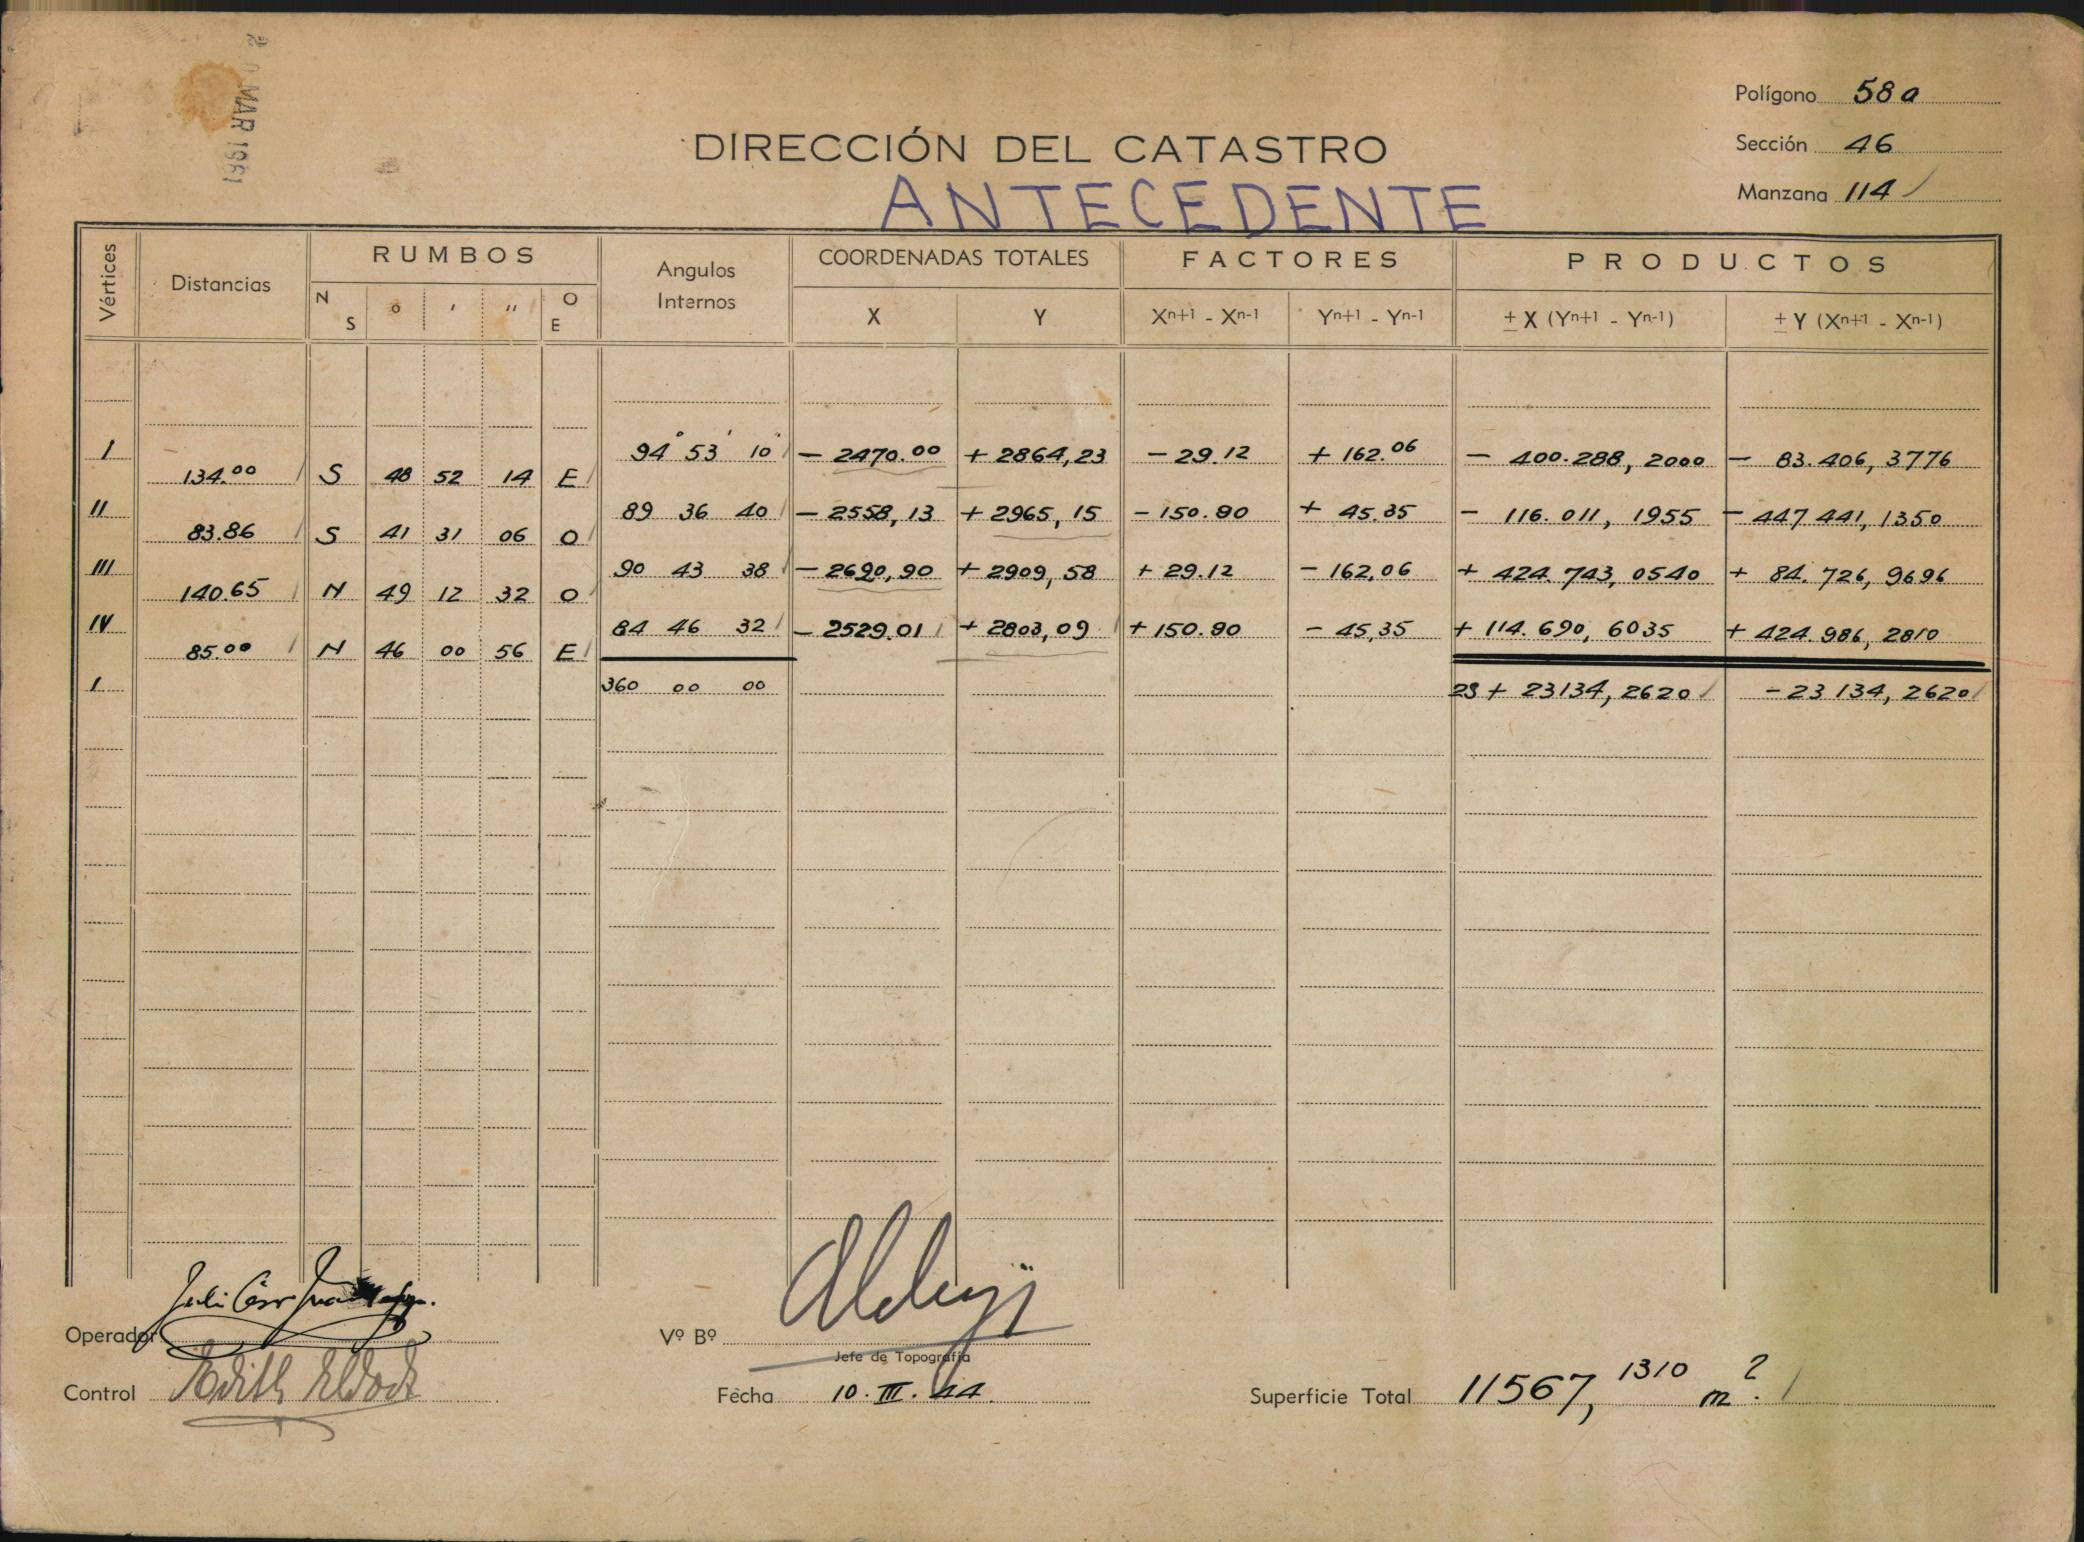 20 MAR 1981
Polígono 58 a
DIRECCIÓN DEL CATASTRO
Sección 46
ANTECEDENTE
Manzana 114
Vértices Distancias RUMBOS Angulos Internos COORDENADAS TOTALES FACTORES PRODUCTOS
N S ° ' '' O E X Y Xn+1 - Xn-1 Yn+1 - Yn-1 ± X (Yn+1 - Yn-1) ± Y (Xn+1 - Xn-1)
I 94° 53' 10'' - 2470.00 + 2864,23 - 29.12 + 162.06 - 400.288, 2000 - 83.406, 3776
134.00 S 48 52 14 E
II 89 36 40 - 2558,13 + 2965,15 - 150.90 + 45.35 - 116.011, 1955 - 447 441, 1350
83.86 S 41 31 06 O
III 90 43 38 - 2690,90 + 2909,58 + 29.12 - 162,06 + 424.743, 0540 + 84.726, 9696
140.65 N 49 12 32 O
IV 84 46 32 - 2529.01 + 2803,09 + 150.90 - 45,35 + 114.690, 6035 + 424.986, 2810
85.00 N 46 00 56 E
I 360 00 00 2S + 23134, 2620 - 23 134, 2620
Operador
Vº Bº
Jefe de Topografía
Control Edith
Fecha 10.III.44.
Superficie Total 11567,1310 m2.